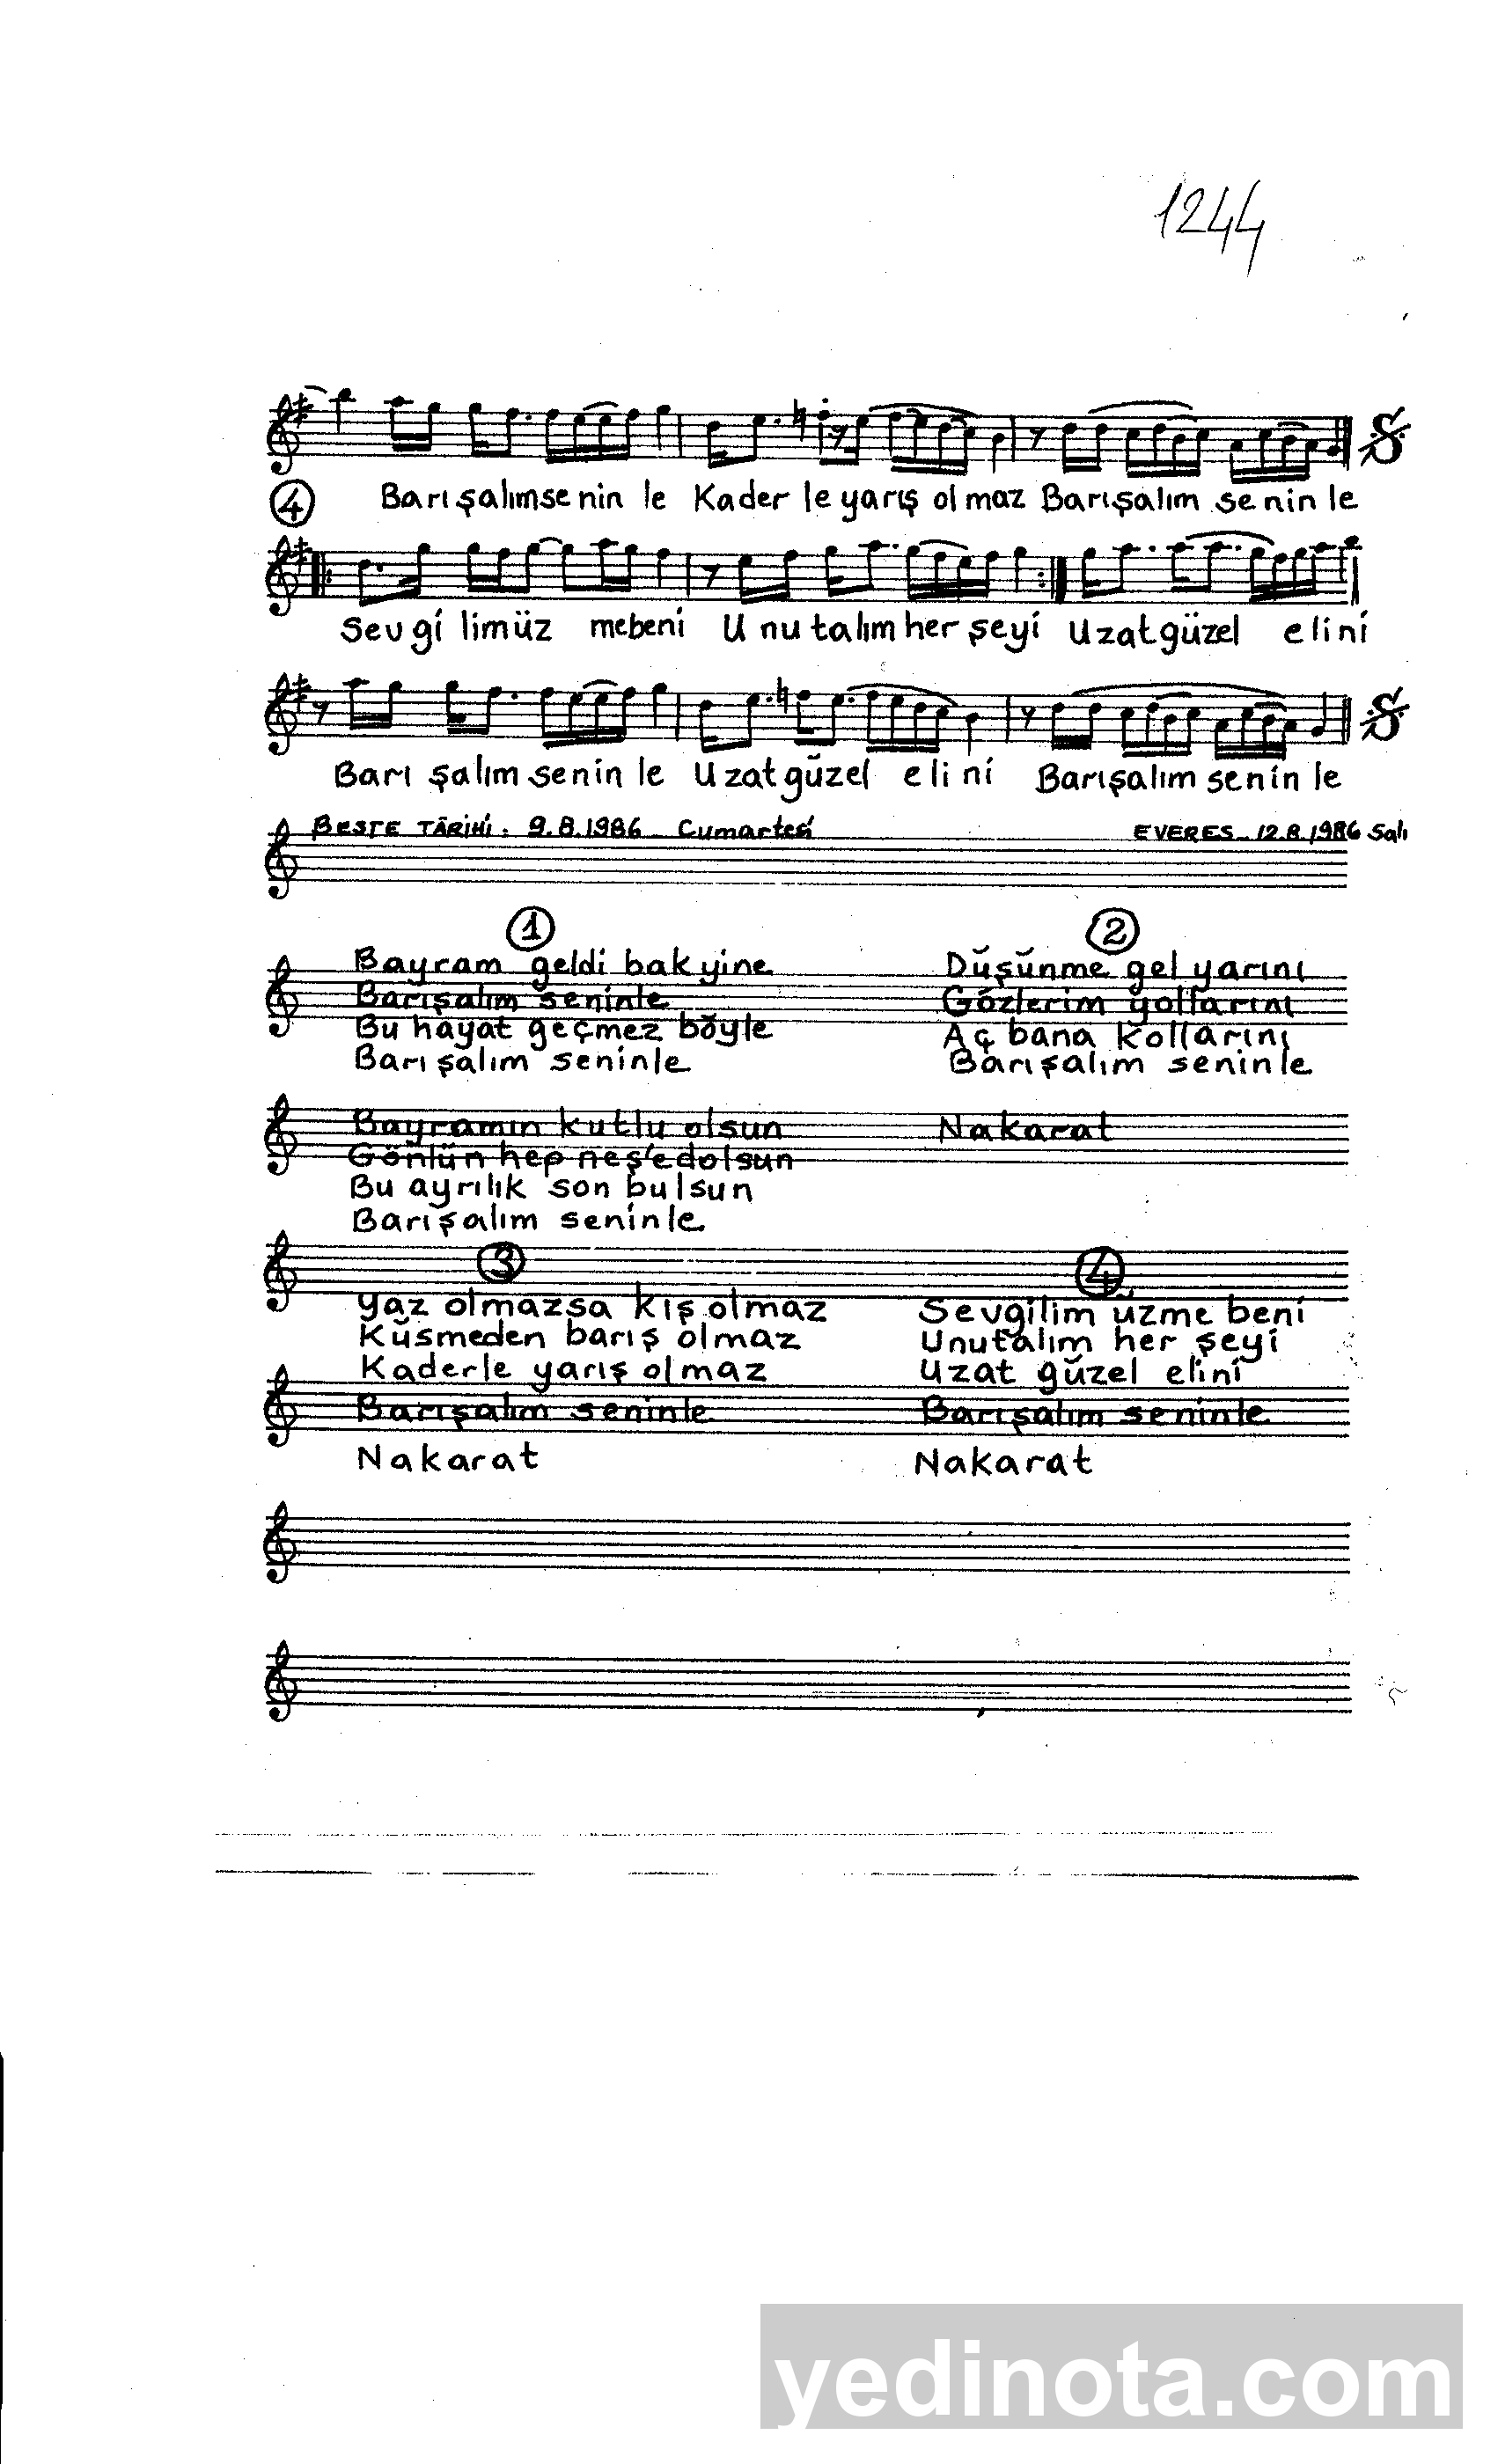 1244
Barışalımsenin le Kader leyarış olmaz Barışalım senin le
4
Sevgi limüz mebeni Unutalım her şeyi Uzatgüzel elini
Barı şalım senin le Uzatgüzel elini Barışalım senin le
BESTE TÂRİHİ: 9.8.1986 Cumartesi
EVERES 12.8.1986 Salı
1
Bayram geldi bak yine
Barışalım seninle
Bu hayat geçmez böyle
Barışalım seninle
Bayramın kutlu olsun
Gönlün hep neş'edolsun
Bu ayrılık son bulsun
Barışalım seninle
2
Düşünme gel yarını
Gözlerim yollarını
Aç bana kollarını
Barışalım seninle
Nakarat
3
Yaz olmazsa kış olmaz
Küsmeden barış olmaz
Kaderle yarış olmaz
Barışalım seninle
Nakarat
4
Sevgilim üzme beni
Unutalım her şeyi
Uzat güzel elini
Barışalım seninle
Nakarat
yedinota.com